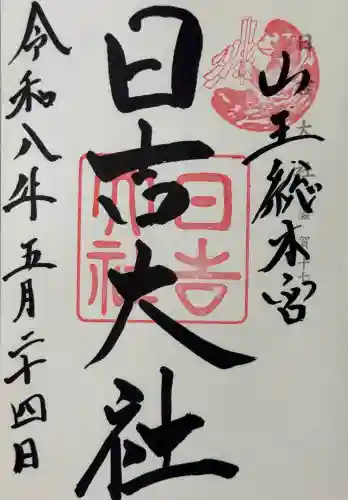 山王総本宮
日吉大社
令和八年五月二十四日
日吉大社